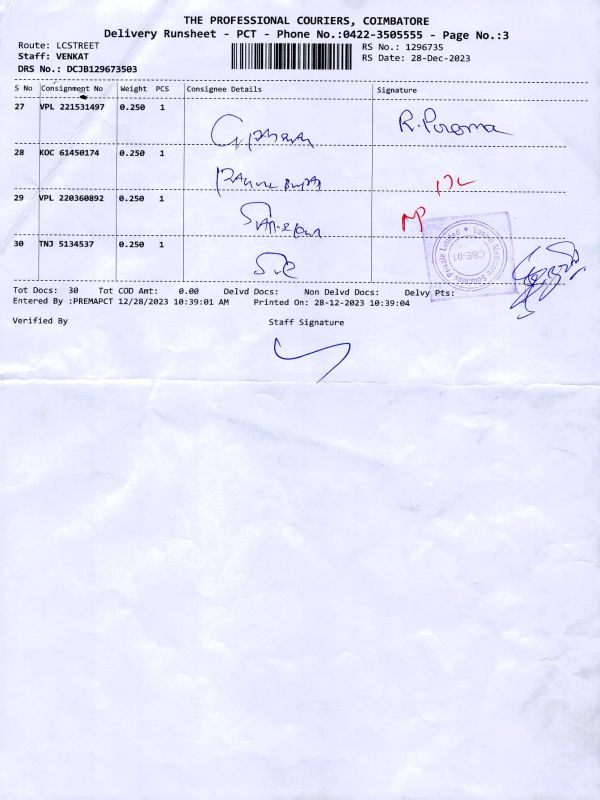 THE PROFESSIONAL COURIERS, COIMBATORE
Delivery Runsheet - PCT - Phone No.:0422-3505555 - Page No.:3
Route: LCSTREET
RS No.: 1296735
Staff: VENKAT
RS Date: 28-Dec-2023
DRS No.: DCJB129673503
S No Consignment No Weight PCS Consignee Details Signature
27 VPL 221531497 0.250 1
28 KOC 61450174 0.250 1
29 VPL 220360892 0.250 1
30 TNJ 5134537 0.250 1
CBE-01
Tot Docs: 30 Tot COD Amt: 0.00 Delvd Docs: Non Delvd Docs: Delvy Pts:
Entered By :PREMAPCT 12/28/2023 10:39:01 AM Printed On: 28-12-2023 10:39:04
Verified By Staff Signature